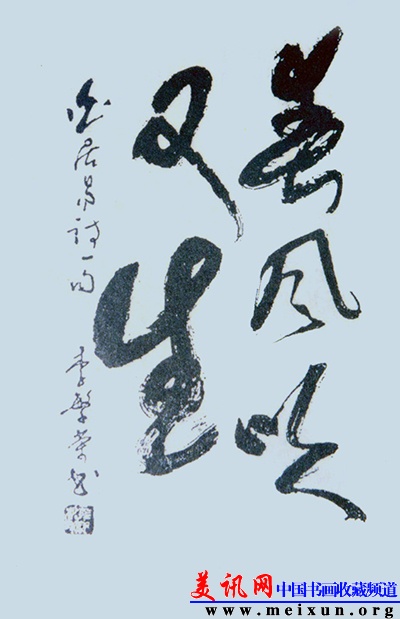 春风吹
又生
白居易诗一句
李繁荣书
美讯网 中国书画收藏频道
www.meixun.org